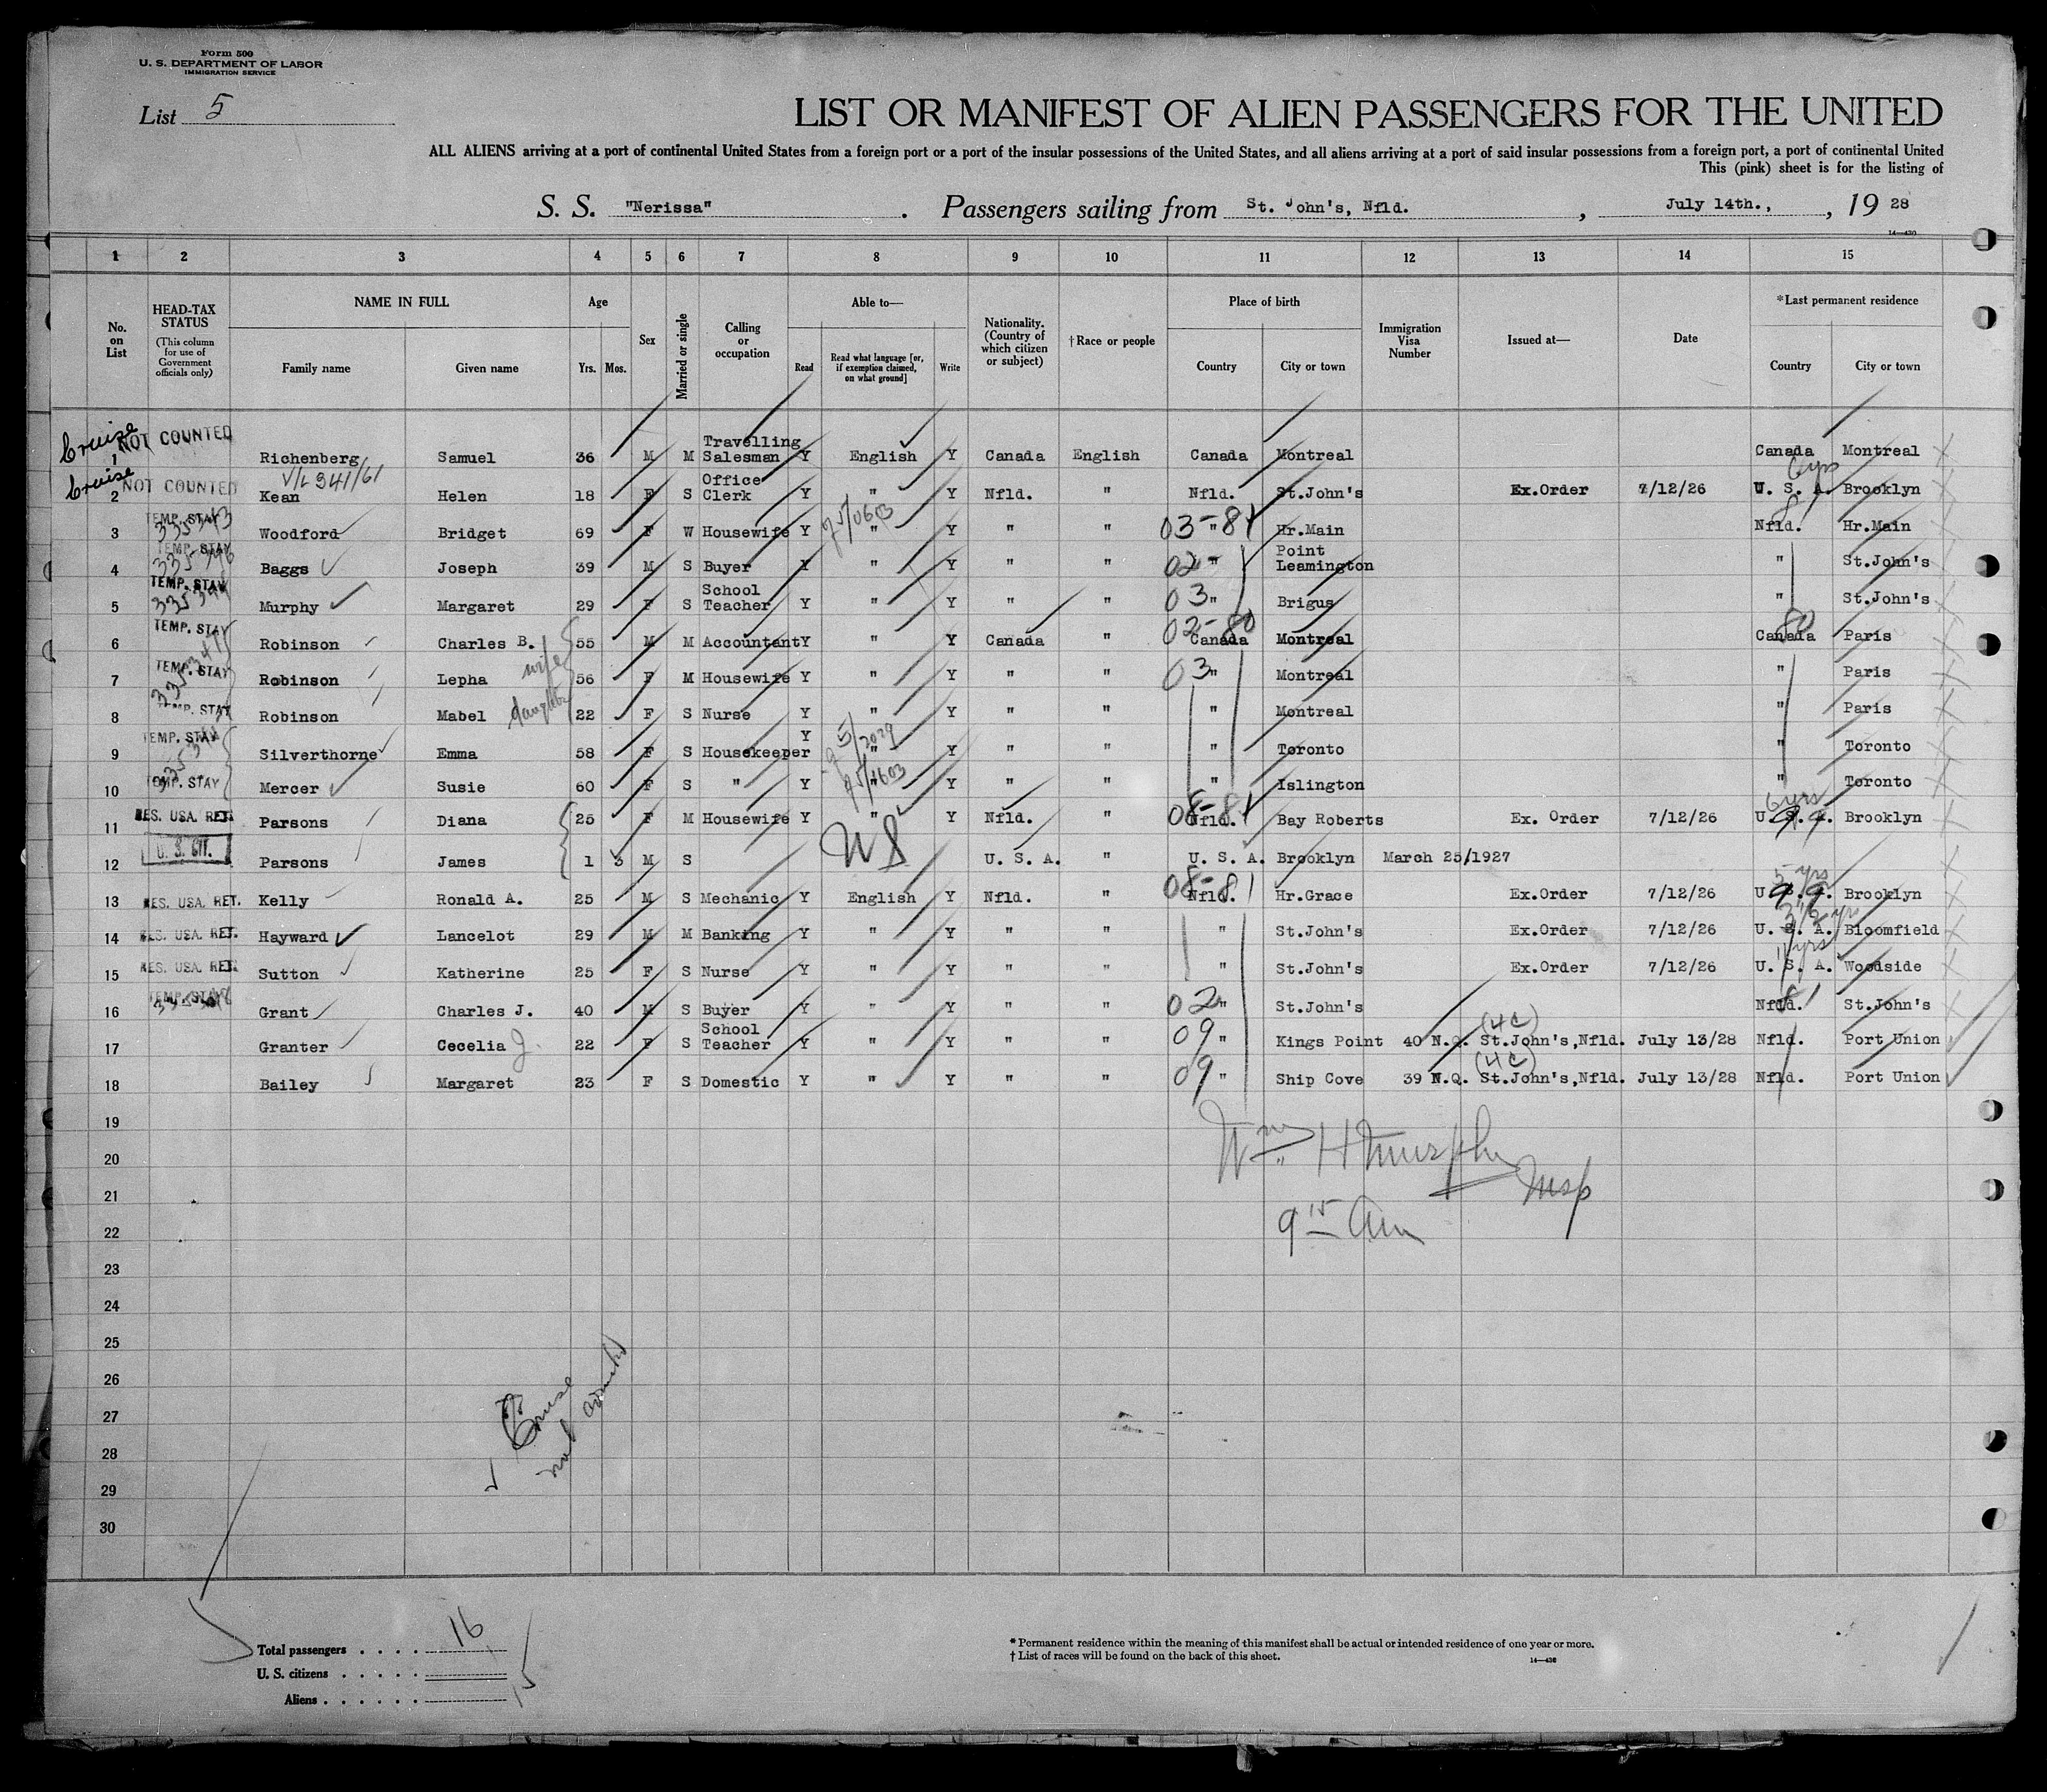 Form 500
U. S. DEPARTMENT OF LABOR
IMMIGRATION SERVICE
List 5
LIST OR MANIFEST OF ALIEN PASSENGERS FOR THE UNITED
ALL ALIENS arriving at a port of continental United States from a foreign port or a port of the insular possessions of the United States, and all aliens arriving at a port of said insular possessions from a foreign port, a port of continental United
This (pink) sheet is for the listing of
S. S. "Nerissa" . Passengers sailing from St. John's, Nfld. , July 14th., , 19 28
14—430
1 2 3 4 5 6 7 8 9 10 11 12 13 14 15
No. on List
HEAD-TAX STATUS (This column for use of Government officials only)
NAME IN FULL
Family name Given name
Age
Yrs. Mos.
Sex
Married or single
Calling or occupation
Able to—
Read
Read what language [or, if exemption claimed, on what ground]
Write
Nationality. (Country of which citizen or subject)
†Race or people
Place of birth
Country City or town
Immigration Visa Number
Issued at—
Date
*Last permanent residence
Country City or town
Cruise NOT COUNTED
1 Richenberg Samuel 36 M M Travelling Salesman Y English Y Canada English Canada Montreal Canada Montreal
V/L 341/61 6 yrs
Cruise NOT COUNTED
2 Kean Helen 18 F S Office Clerk Y " Y Nfld. " Nfld. St.John's Ex.Order 7/12/26 U. S. A. Brooklyn
3 TEMP. STAY Woodford Bridget 69 F W Housewife Y " Y " " 03-81 " Hr.Main Nfld. Hr.Main
4 TEMP. STAY Baggs Joseph 39 M S Buyer Y " Y " " 02 " Point Leamington " St.John's
5 TEMP. STAY Murphy Margaret 29 F S School Teacher Y " Y " " 03 " Brigus " St.John's
6 TEMP. STAY Robinson Charles B. 55 M M Accountant Y " Y Canada " 02-80 Canada Montreal Canada 80 Paris
7 TEMP. STAY Robinson Lepha wife 56 F M Housewife Y " Y " " 03 " Montreal " Paris
8 TEMP. STAY Robinson Mabel daughter 22 F S Nurse Y " Y " " " Montreal " Paris
9 TEMP. STAY Silverthorne Emma 58 F S Housekeeper Y " Y " " " Toronto " Toronto
10 TEMP. STAY Mercer Susie 60 F S " Y " Y " " " Islington " Toronto
11 RES. USA. RET. Parsons Diana 25 F M Housewife Y " Y Nfld. " 08-81 Nfld. Bay Roberts Ex. Order 7/12/26 6 yrs U. S. A. Brooklyn
12 U. S. CIT. Parsons James 1 3 M S U. S. A. " U. S. A. Brooklyn March 25/1927
13 RES. USA. RET. Kelly Ronald A. 25 M S Mechanic Y English Y Nfld. " 08-81 Nfld. Hr.Grace Ex.Order 7/12/26 5 yrs U. S. A. Brooklyn
14 RES. USA. RET. Hayward Lancelot 29 M M Banking Y " Y " " " St.John's Ex.Order 7/12/26 U. S. A. Bloomfield
15 RES. USA. RET. Sutton Katherine 25 F S Nurse Y " Y " " " St.John's Ex.Order 7/12/26 U. S. A. Woodside
16 TEMP. STAY Grant Charles J. 40 M S Buyer Y " Y " " 02 " St.John's Nfld. St.John's
17 Granter Cecelia J. 22 F S School Teacher Y " Y " " 09 " Kings Point 40 N.Q. (4C) St.John's,Nfld. July 13/28 Nfld. Port Union
18 Bailey Margaret 23 F S Domestic Y " Y " " 09 " Ship Cove 39 N.Q. (4C) St.John's,Nfld. July 13/28 Nfld. Port Union
19
20
21
22
23
24
25
26
27
28
29
30
Wm H Murphy Insp
9 15 am
Cruise
not counted
Total passengers . . . . . 16
U. S. citizens . . . . . 1
Aliens . . . . . . 15
* Permanent residence within the meaning of this manifest shall be actual or intended residence of one year or more.
† List of races will be found on the back of this sheet.
14—430